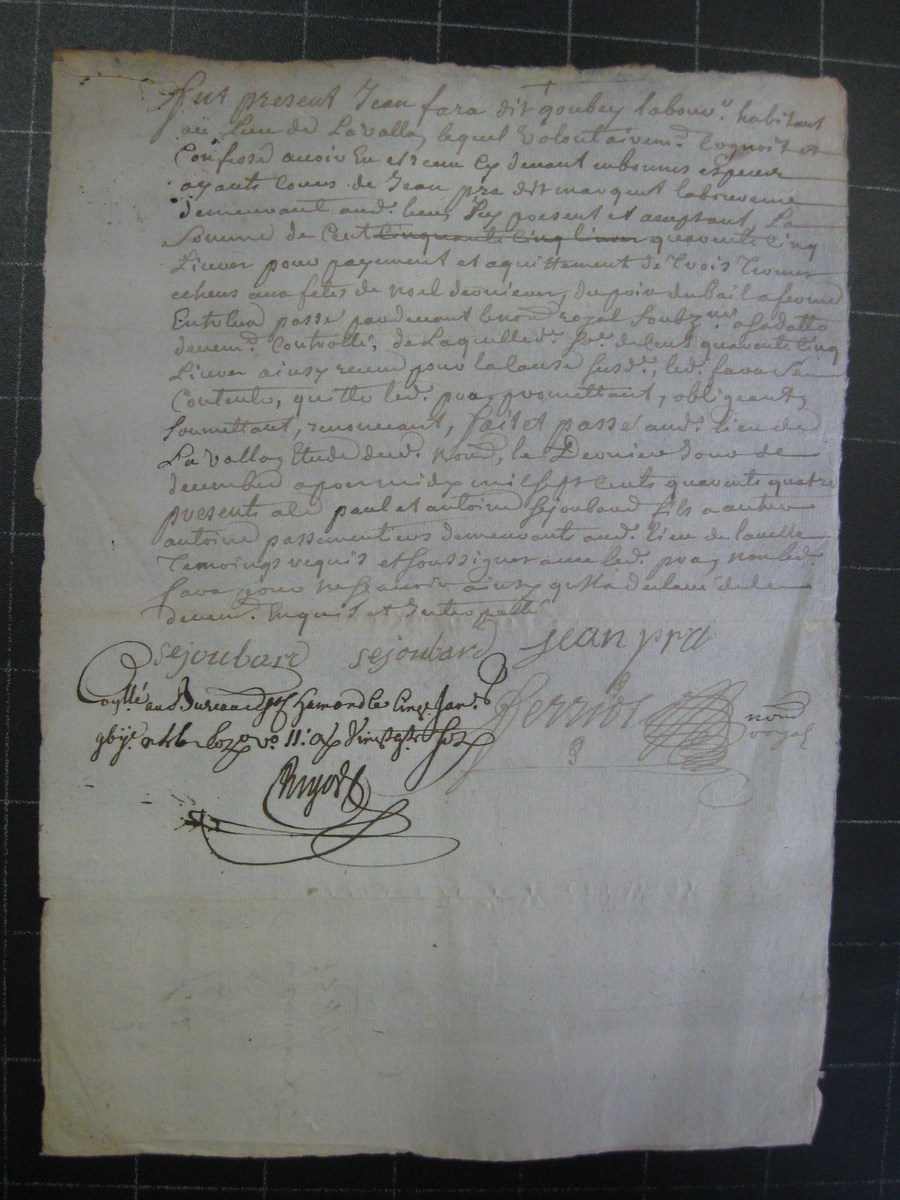 fut present Jean fara dit goubey labour.r habitant
au Lieu de La valla, lequel volontairem.t Cognoit et
Confesse avoir Eu et receu Cy devant en bonnes especes
ayants Cours de Jean pra dit marquet laboureur
demeurant aud. lieu Icy present et aceptant La
Somme de Cent cinquante cinq livres quarante cinq
Livres pour payement et aquittement de trois termes
echeus aux fetes de noel dernieres, du prix du bail a ferme
Entre Eux passé pardevant le no.re royal Soubz.né a sa datte
devem.t Controllé, de Laquelle d. So.e de Cent quarante Cinq
Livres ainsy receue pour la Cause susd.e, led. fara Se
Contente, quitte led. pra, promettant, obligeant,
soumettant, renoncant, fait et passé aud. lieu de
La valla, Etude dud. No.re, le Dernier Jour de
decembre apres midy mil sept Cents quarante quatre
present a ce paul et antoine Sejoubard fils a autre
antoine passementiers demeurants aud. lieu de lavalla
Temoings requis et soussignes avec led. pra, non led.
fara pour ne scavoir ainsy qu'il a declaré de ce
devem.t Enquis et Interpellé
sejoubard sejoubard jean pra
Co.llé au d. Bureau de St Chamond le Cinq Janv.r
Perrier no.re royal